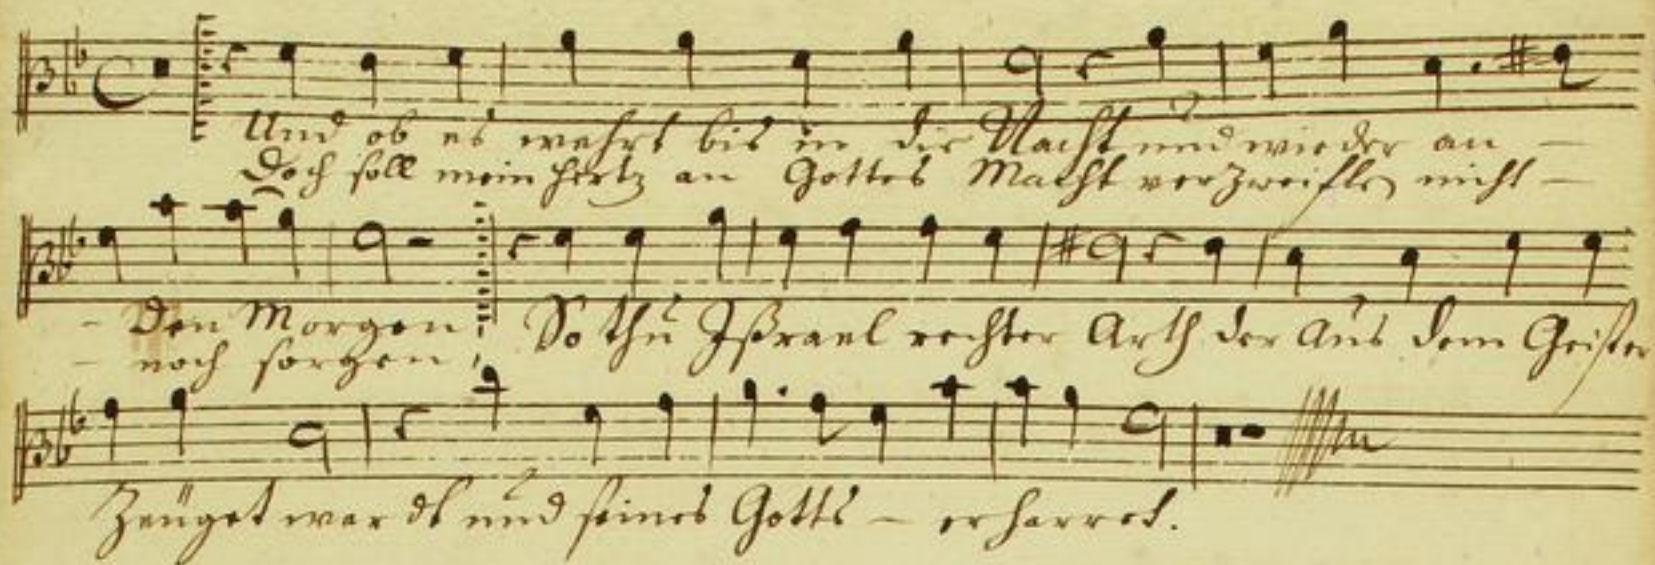 Und ob es wehrt bis in die Nacht und wieder an –
Doch soll mein hertz an Gottes Macht verzweiflen nicht –
– den Morgen
– noch sorgen, So thu Ißrael rechter Arth der Aus dem Geister
Zeüget wardt und seines Gotts – erharret.